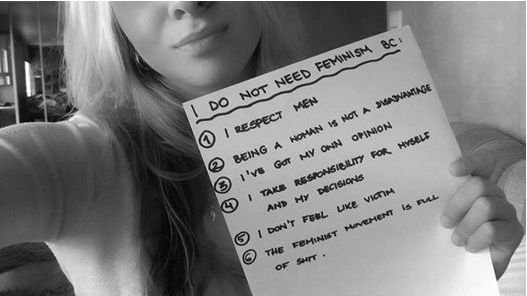 I DO NOT NEED FEMINISM BC:
1 I RESPECT MEN
2 BEING A WOMAN IS NOT A DISADVANTAGE
3 I'VE GOT MY OWN OPINION
4 I TAKE RESPONSIBILITY FOR MYSELF
AND MY DECISIONS
5 I DON'T FEEL LIKE VICTIM
6 THE FEMINIST MOVEMENT IS FULL
OF SHIT.